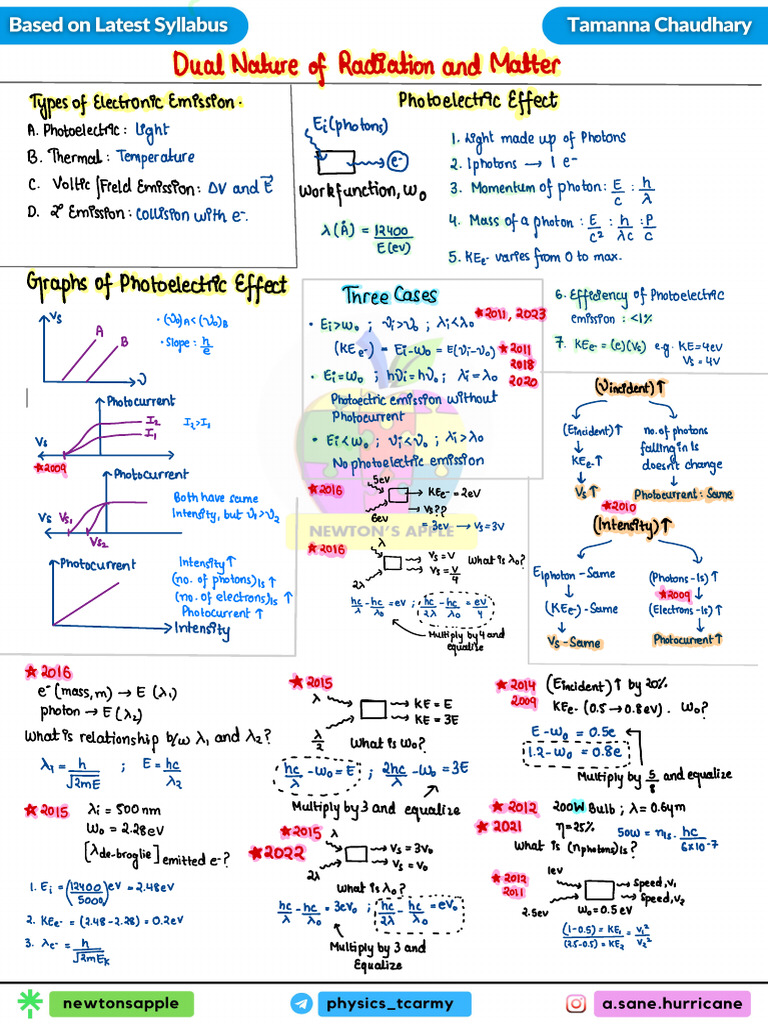 Based on Latest Syllabus
Tamanna Chaudhary
Dual Nature of Radiation and Matter
Types of Electronic Emission.
A. Photoelectric: Light
B. Thermal: Temperature
C. Voltic / Field Emission: ΔV and E⃗
D. 2° Emission: Collision with e⁻.
Photoelectric Effect
Ei (photons)
e⁻
Workfunction, W₀
λ(Å) = 12400 / E(ev)
1. Light made up of Photons
2. 1 photons → 1 e⁻
3. Momentum of photon: E/c : h/λ
4. Mass of a photon: E/c² : h/λc : P/c
5. KEe⁻ varies from 0 to max.
6. Efficiency of Photoelectric
emission: <1%
7. KEe⁻ = (e)(Vs) e.g. KE=4ev
Vs = 4V
Graphs of Photoelectric Effect
Vs
A
B
ν
• (ν₀)A < (ν₀)B
• Slope: h/e
Photocurrent
I₂
I₁
I₂>I₁
Vs
★2009
Photocurrent
Vs Vs₁
Vs₂
Both have same
Intensity, but ν₁>ν₂
Photocurrent
Intensity
Intensity↑
(no. of photons)1s ↑
(no. of electrons)1s ↑
Photocurrent ↑
Three Cases
• Ei>W₀ ; νi>ν₀ ; λi<λ₀ ★2011, 2023
(KEe⁻) = Ei-W₀ = E(νi-ν₀) ★2011
2018
• Ei=W₀ ; hνi=hν₀ ; λi=λ₀ 2020
Photoectric emission without
Photocurrent
• Ei<W₀ ; νi<ν₀ ; λi>λ₀
No photoelectric emission
★2016
5ev
6ev
KEe⁻ = 2eV
Vs??
= 3ev → Vs=3V
NEWTON'S APPLE
★2016
λ
2λ
Vs = V
Vs = V/4
What is λ₀?
hc/λ - hc/λ₀ = eV ; hc/2λ - hc/λ₀ = eV/4
Multiply by 4 and
equalise
(νincident)↑
(Eincident)↑
KEe⁻↑
Vs↑
no. of photons
falling in 1s
doesn't change
Photocurrent: Same
★2010
(Intensity)↑
E1photon - Same
(KEe⁻) - Same
Vs - Same
(Photons-1s)↑
★2009
(Electrons-1s)↑
Photocurrent↑
★2016
e⁻(mass, m) → E (λ₁)
photon → E (λ₂)
What is relationship b/w λ₁ and λ₂?
λ₁ = h/√2mE ; E = hc/λ₂
★2015
λi = 500nm
W₀ = 2.28eV
[λde-broglie] emitted e⁻?
1. Ei = (12400/5000)eV = 2.48eV
2. KEe⁻ = (2.48-2.28) = 0.2eV
3. λe⁻ = h/√2mEK
★2015
λ
λ/2
KE = E
KE = 3E
What is W₀?
hc/λ - W₀ = E ; 2hc/λ - W₀ = 3E
Multiply by 3 and equalize
★2015
★2022
λ
2λ
Vs = 3V₀
Vs = V₀
What is λ₀?
hc/λ - hc/λ₀ = 3eV₀ ; hc/2λ - hc/λ₀ = eV₀
Multiply by 3 and
Equalize
★2014
2009
(Eincident)↑ by 20%
KEe⁻ (0.5→0.8eV). W₀?
E-W₀ = 0.5e
1.2-W₀ = 0.8e
Multiply by 5/8 and equalize
★2012
★2021
200W Bulb ; λ = 0.6μm
η=25%
50W = n1s. hc/6×10⁻⁷
What is (nphotons)1s?
★2012
2011
1ev
2.5ev
Speed, V₁
Speed, V₂
W₀ = 0.5 eV
(1-0.5) = KE₁ / (2.5-0.5) = KE₂ = V₁²/V₂²
newtonsapple
physics_tcarmy
a.sane.hurricane